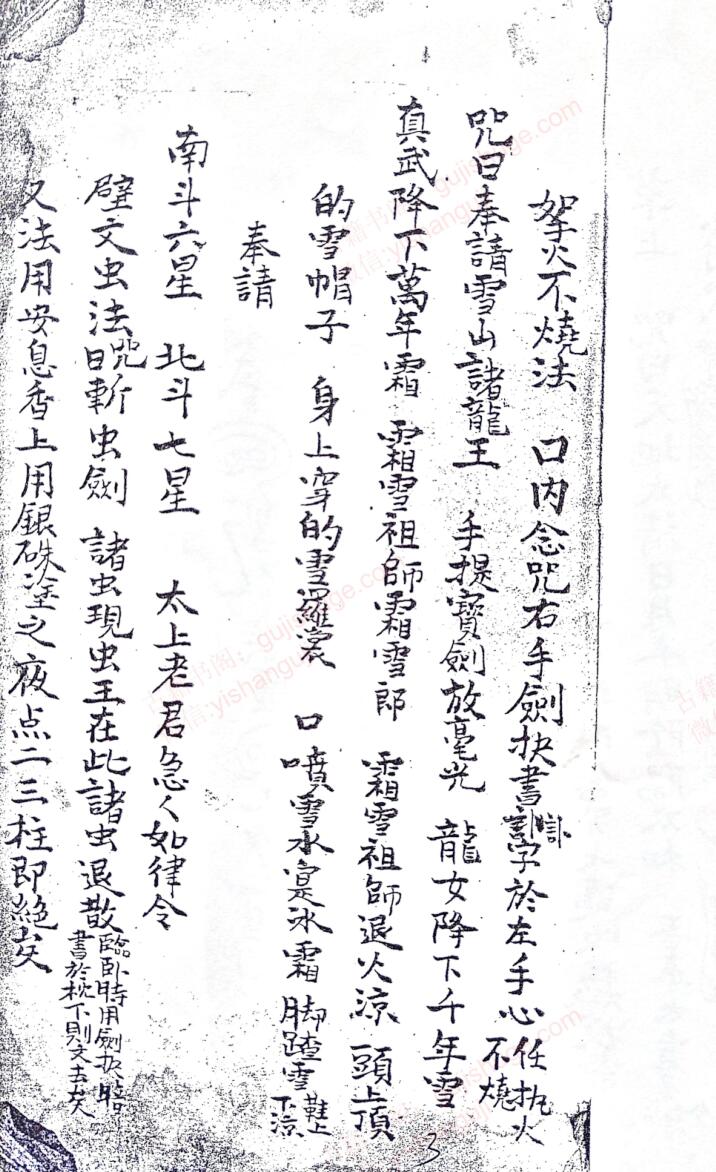 拏火不燒法 口內念咒右手劍抉書訃字於左手心任执火不燒
咒曰奉請雪山諸龍王 手提寶劍放毫光 龍女降下千年雪
真武降下萬年霜 霜雪祖師霜雪郎 霜雪祖師退火涼 頭上頂
的雪帽子 身上穿的雪羅裳 口噴雪水是冰霜 脚踏雪鞋上下涼
奉請
南斗六星 北斗七星 太上老君急く如律令
壁文虫法咒曰斬虫劍 諸虫現虫王在此諸虫退散臨卧時用劍抉暗書於枕下則文去矣
又法用安息香上用銀硃塗之夜点二三柱即絶矣
3
古籍书阁：gujishuge.com
微信:yishangu